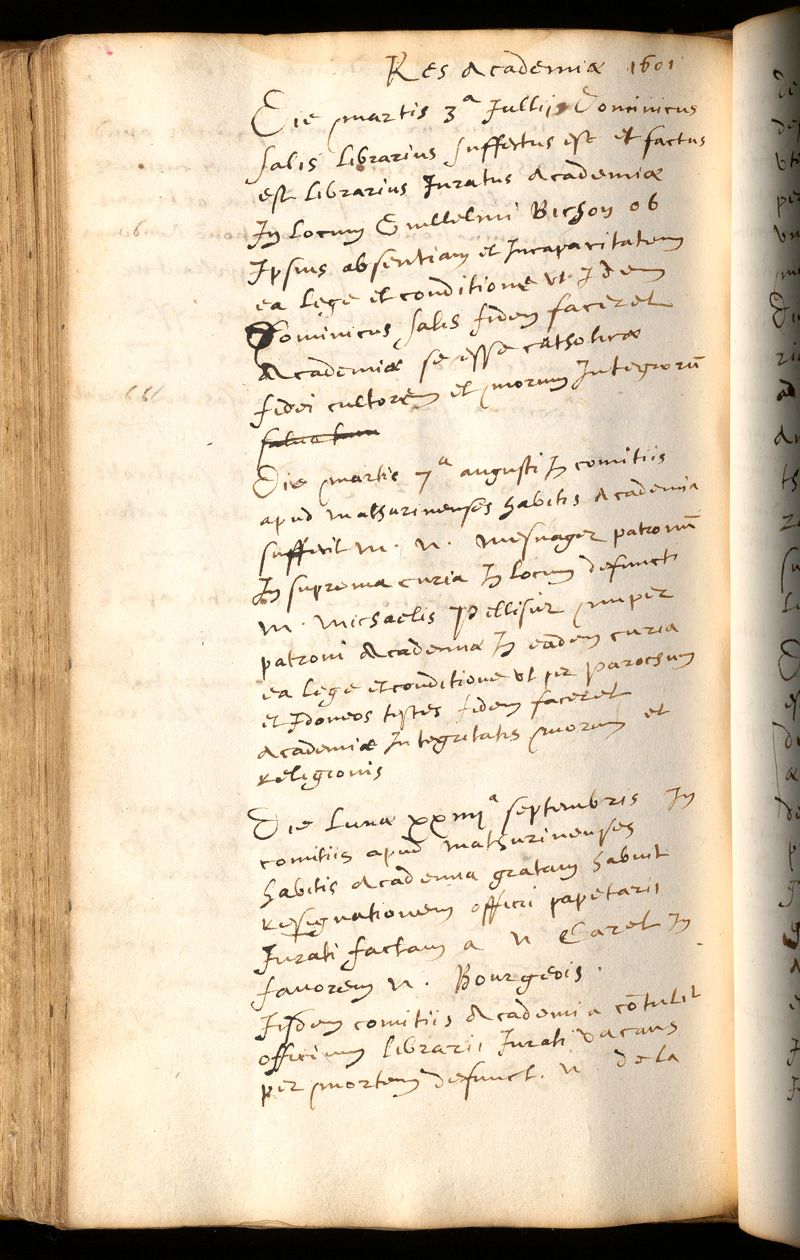 Res Academiæ 1601
Die martis 3ª Jullii Dominicus
Salis Librarius suffectus est et factus
est Librarius Juratus Academiæ
In Locum Guillelmi Bichon ob
Ipsius absentiam et Incapacitatem
ea Lege et conditione ut Idem
Dominicus Salis fidem faceret
Academiæ se esse catholicæ
fidei cultorem et morum Integrorū
Die martis 7ª augusti In comitiis
apud mathurinenses habitis Academia
suffecit m. n. mesnager patronū
In suprema curia In locum defuncti
m. michaelis Pellisier nuper
patroni Academiæ In eadem curia
ea Lege et conditione ut per parochum
et Idoneos testes fidem faceret
Academiæ Integritatis morum et
Religionis
Die Lunæ xxiiiiª septembris In
comitiis apud mathurinenses
habitis Academia gratam habuit
Resignationem officii papetarii
Jurati factam a n Carel In
favorem n. Bourgeois.
Iisdem comitiis Academia cōtulit
officium librarii Jurati vacans
per mortem defunct. n. de la